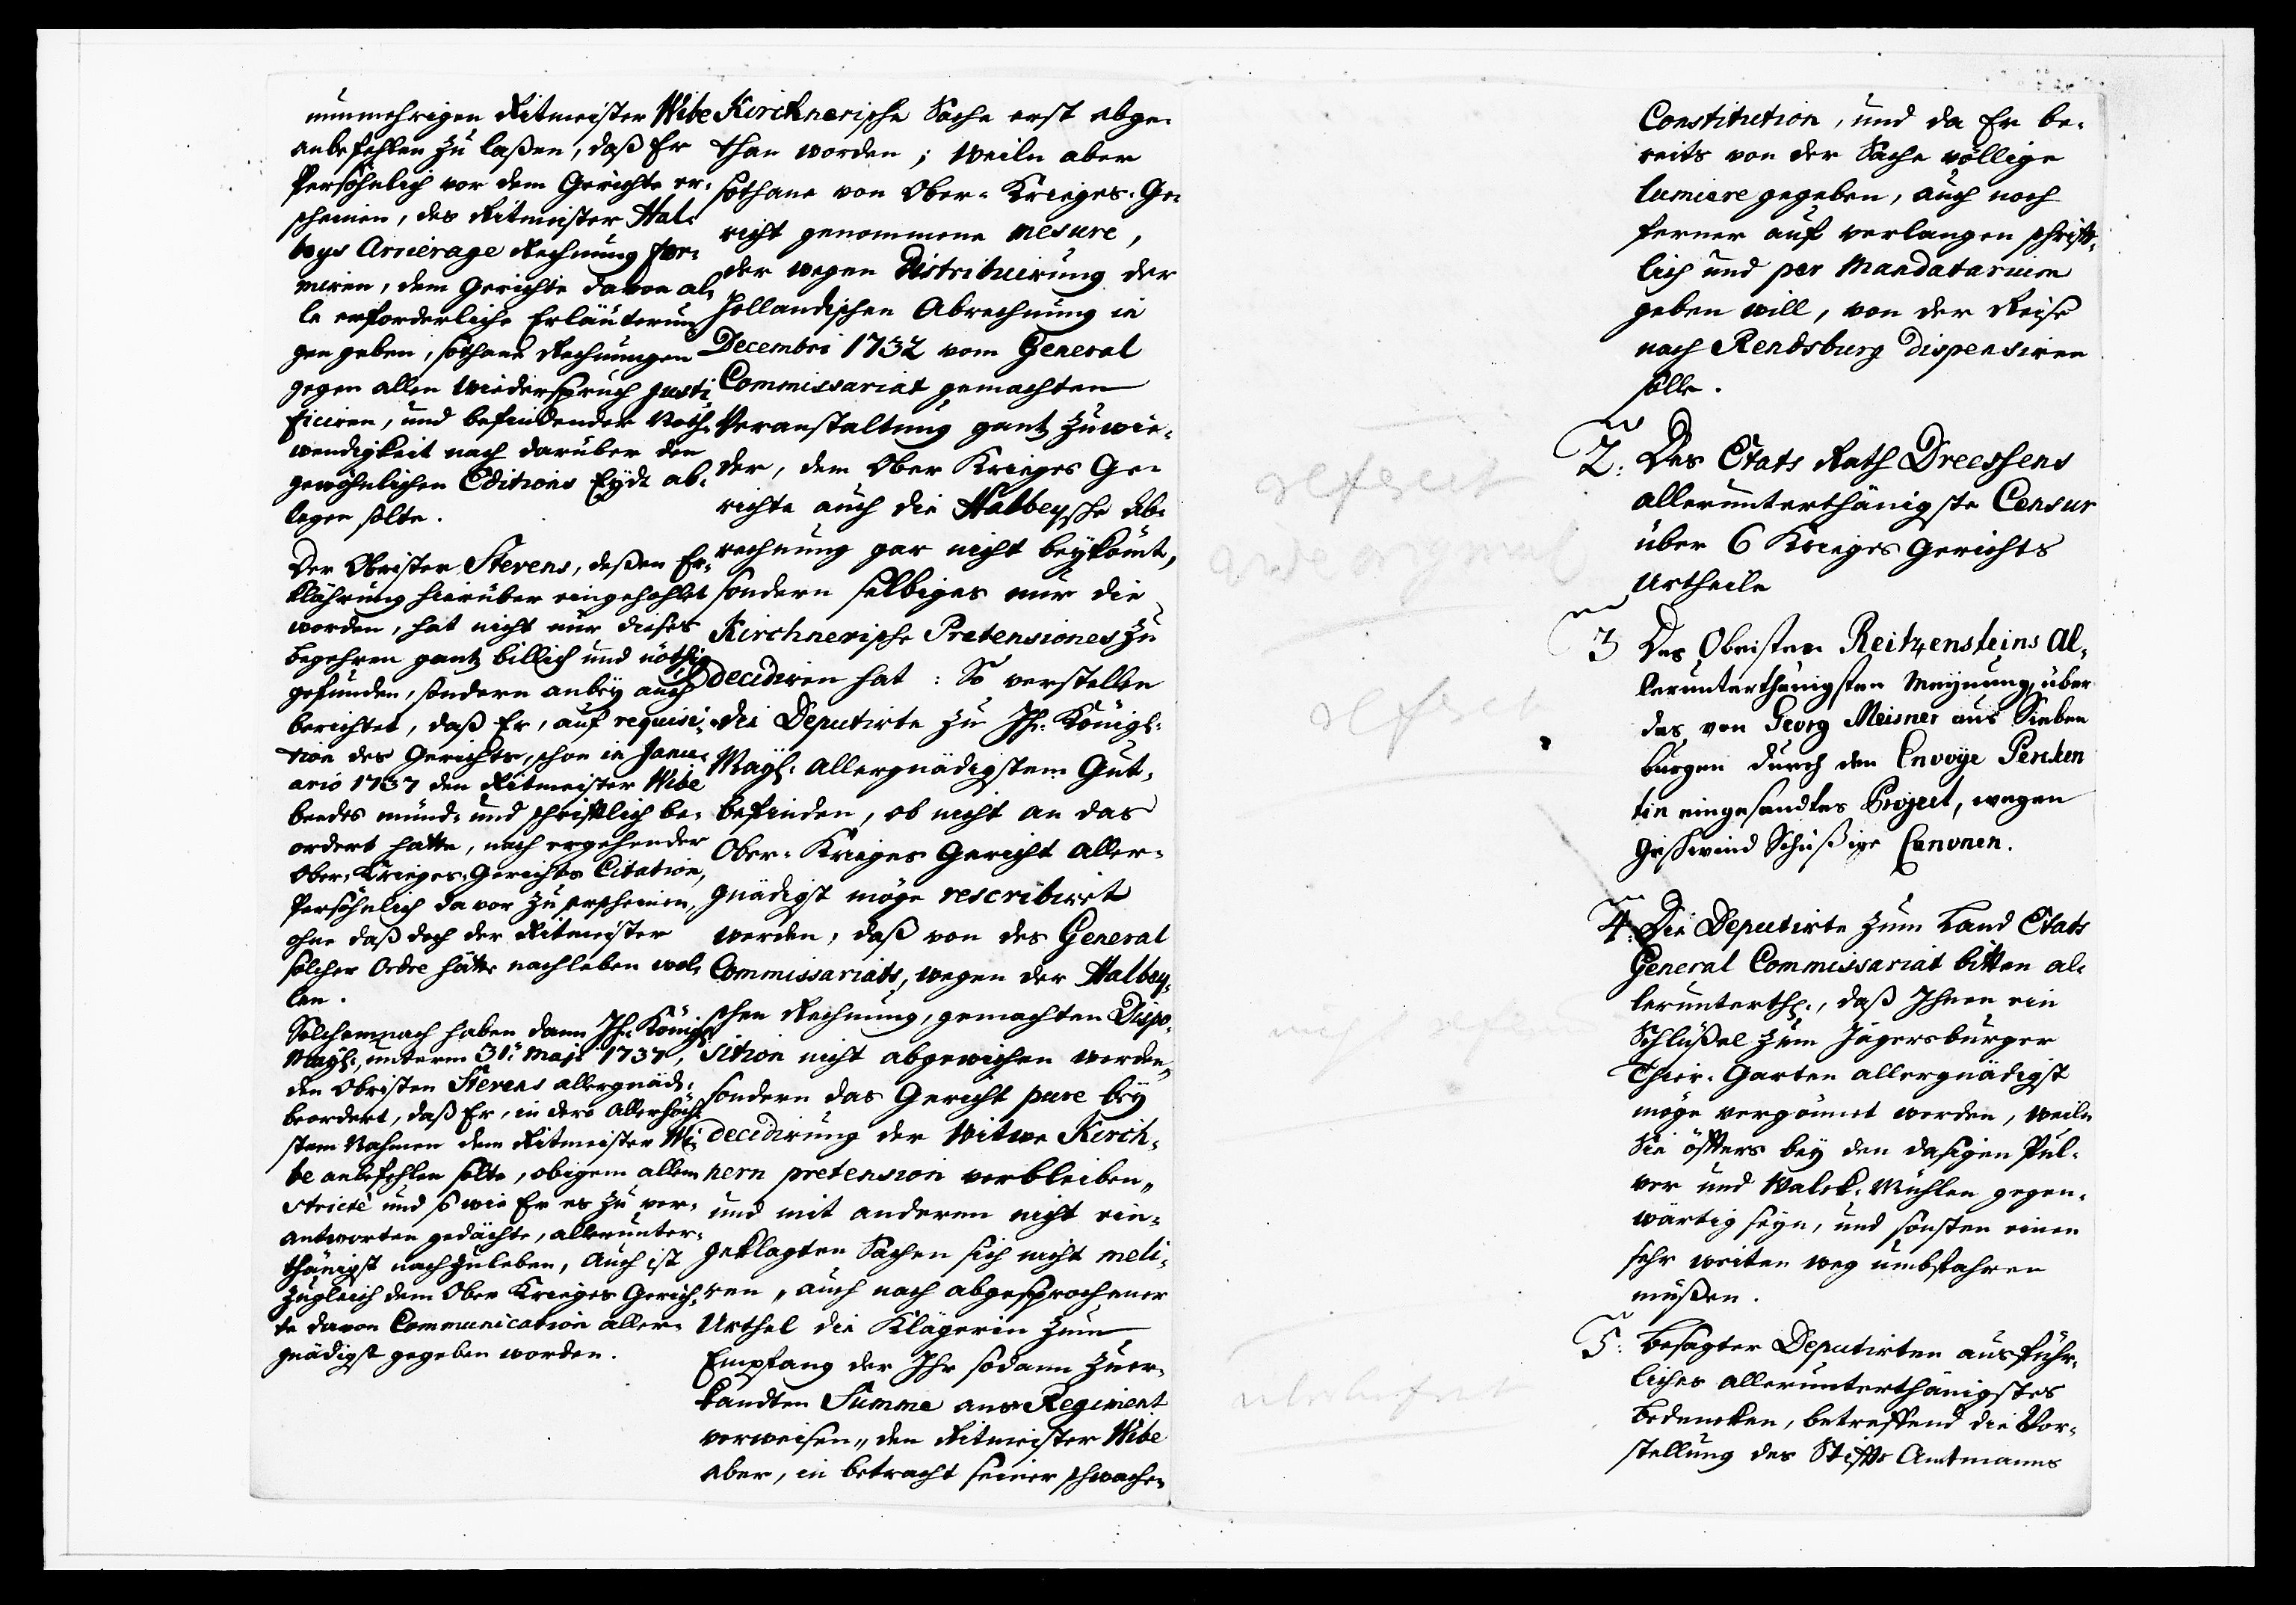 nunmehrigen Ritmeister Wibe
anbefehlen zu laßen, daß Er
Persöhnlich vor dem Gerichte er-
scheinen, des Ritmeister Hal-
beys Arrierage Rechnung for-
miren, dem Gerichte davon al-
le erforderliche Erläuterun-
gen geben, sothane Rechnungen
gegen allen Wiederspruch justi-
ficiren, und befindender Noth-
wendigkeit nach darüber den
gewöhnlichen Editions Eydt ab-
legen solte.
Der Obrister Stevens, deßen Er-
klährung hierüber eingehohlet
worden, hat nicht nur dieses
begehren gantz billich und nöthig
gefunden, sondern anbey auch
berichtet, daß Er, auf requisi-
tion des Gerichts, schon in Janu-
ario 1737 den Ritmeister Wibe
beedes münd- und schriftlich be-
ordert hatte, nach ergehender
Ober-Krieges-Gerichts Citation,
Persöhnlich davor zu erscheinen,
ohne daß doch der Ritmeister
solcher Ordre hätte nachleben wol-
len.
Solchemnach haben dann Ihr Königl.
Mayt:, unterm 31: Maji 1737,
den Obristen Stevens allergnäd:
beordert, daß Er, in dero Allerhöch-
stem Nahmen dem Ritmeister Wi-
be anbefehlen solte, obigem allem
stricte und so wie Er es zu ver-
antworten gedächte, allerunter-
thänigst nachzuleben, Auch ist
zugleich dem Ober Krieges Gerich-
te davon Communication aller-
gnädigst gegeben worden.
Kirchnerische Sache erst abge-
than worden; Weiln aber
sothane von Ober-Krieges-Ge-
richt genommene mesure,
der wegen Distribuirung der
Holländischen Abrechnung in
Decembri 1732 vom General
Commissariat gemachten
Veranstaltung gantz zuwie-
der, dem Ober Krieges Ge-
richte auch die Halbeysche Ab-
rechnung gar nicht beykömt,
sondern selbiges nur die
Kirchnerische Pretensiones zu
decidiren hat: So verstellen
die Deputirte zu Ihr. Königl:
Mayt: Allergnädigstem Gut-
befinden, ob nicht an das
Ober-Krieges Gericht Aller-
gnädigst möge rescribiret
werden, daß von des General
Commissariats, wegen der Halbey-
schen Rechnung, gemachten Dispo-
sition nicht abgewichen werden,
sondern das Gericht pure bey
decidirung der Witwe Kirch-
nern pretension verbleiben,,
und mit anderen nicht ein-
geklagten Sachen sich nicht meli-
ren,, auch nach abgesprochener
Urthel die Klägerin zum
Empfang der Ihr sodann zuer-
kandten Summe ans Regiment
verweisen,, den Ritmeister Wibe
aber, in betracht seiner schwachen
referert
referert
Constitution, und da Er be-
reits von der Sache völlige
lumiere gegeben, auch noch
ferner auf verlangen schrift-
lich und per Mandatarium
geben will, von der Reise
nach Rendsburg dispensiren
solle.
2: Des Etats Rath Dreessens
allerunterthänigste Censur
über 6 Krieges Gerichts
Urtheile
3 Des Obristen Reitzensteins al-
lerunterthänigsten Meynung, über
das von Georg Meisner aus Sieben
bürgen durch den Envoÿe Penken
tin eingesandtes Project, wegen
geschwind Schüßige Canonen.
4: Die Deputirte zum Land Etats
General Commissariat bitten al-
lerunterth:, daß Ihnen ein
Schlüßel zum Jägersburger
Thier-Garten allergnädigst
möge vergönnet werden, weiln
Sie öffters bey den dasigen Pul-
ver und Walck-Mühlen gegen-
wärtig seyn, und sonsten einen
sehr weiten weg umbfahren
müßen.
5: Besagter Deputirten ausführ-
liches allerunterthänigstes
Bedencken, betreffend die Vor-
stellung des Stiffts Amtmanns